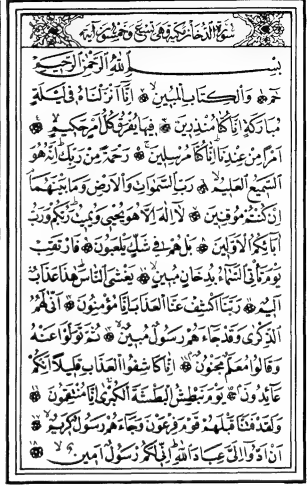 سورة الدخان مكية وهي تسع وخمسون آية
بسم الله الرحمن الرحيم
حم والكتاب المبين إنا أنزلناه في ليلة
مباركة إنا كنا منذرين فيها يفرق كل أمر حكيم
أمرا من عندنا إنا كنا مرسلين رحمة من ربك إنه هو
السميع العليم رب السموات والأرض وما بينهما
إن كنتم موقنين لا إله إلا هو يحيي ويميت ربكم ورب
آبائكم الأولين بل هم في شك يلعبون فارتقب
يوم تأتي السماء بدخان مبين يغشى الناس هذا عذاب
أليم ربنا اكشف عنا العذاب إنا مؤمنون أنى لهم
الذكرى وقد جاءهم رسول مبين ثم تولوا عنه
وقالوا معلم مجنون إنا كاشفوا العذاب قليلا إنكم
عائدون يوم نبطش البطشة الكبرى إنا منتقمون
ولقد فتنا قبلهم قوم فرعون وجاءهم رسول كريم
أن أدوا إلي عباد الله إني لكم رسول أمين